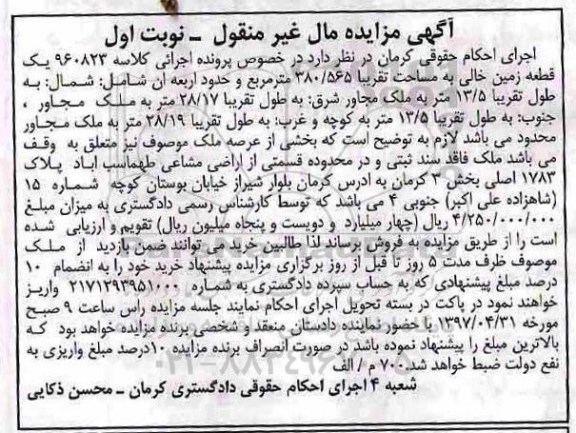 آگهی مزایده مال غیر منقول ـ نوبت اول
اجرای احکام حقوقی کرمان در نظر دارد در خصوص پرونده اجرائی کلاسه ۹۶۰۸۲۳ یک
قطعه زمین خالی به مساحت تقریبا ۳۸۰/۵۶۵ مترمربع و حدود اربعه ان شامل: شمال: به
طول تقریبا ۱۳/۵ متر به ملک مجاور شرق: به طول تقریبا ۲۸/۱۷ متر به ملک مجاور ،
جنوب: به طول تقریبا ۱۳/۵ متر به کوچه و غرب: به طول تقریبا ۲۸/۱۹ متر به ملک مجاور
محدود می باشد لازم به توضیح است که بخشی از عرصه ملک موصوف نیز متعلق به وقف
می باشد ملک فاقد سند ثبتی و در محدوده قسمتی از اراضی مشاعی طهماسب اباد پلاک
۱۷۸۳ اصلی بخش ۳ کرمان به ادرس کرمان بلوار شیراز خیابان بوستان کوچه شماره ۱۵
(شاهزاده علی اکبر) جنوبی ۴ می باشد که توسط کارشناس رسمی دادگستری به میزان مبلغ
۴/۲۵۰/۰۰۰/۰۰۰ ریال (چهار میلیارد و دویست و پنجاه میلیون ریال) تقویم و ارزیابی شده
است را از طریق مزایده به فروش برساند لذا طالبین خرید می توانند ضمن بازدید از ملک
موصوف ظرف مدت ۵ روز تا قبل از روز برگزاری مزایده پیشنهاد خرید خود را به انضمام ۱۰
درصد مبلغ پیشنهادی که به حساب سپرده دادگستری به شماره ۲۱۷۱۲۹۳۹۵۱۰۰۰ واریز
خواهند نمود در پاکت در بسته تحویل اجرای احکام نمایند جلسه مزایده راس ساعت ۹ صبح
مورخه ۱۳۹۷/۰۴/۳۱ با حضور نماینده دادستان منعقد و شخصی برنده مزایده خواهد بود که
بالاترین مبلغ را پیشنهاد نموده باشد در صورت انصراف برنده مزایده ۱۰درصد مبلغ واریزی به
نفع دولت ضبط خواهد شد.۷۰۰ م / الف
شعبه ۴ اجرای احکام حقوقی دادگستری کرمان ـ محسن ذکایی